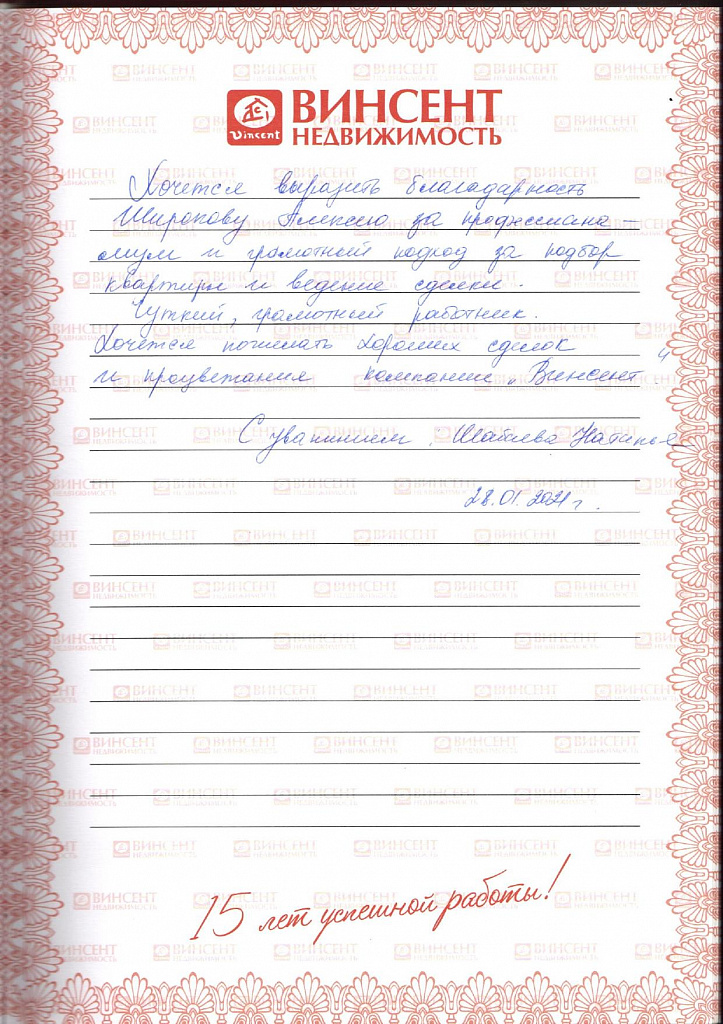 Vincent
ВИНСЕНТ
НЕДВИЖИМОСТЬ
Хочется выразить благодарность
Широкову Алексею за професиана-
лизм и грамотный подход за подбор
квартиры и ведение сделки.
Чуткий, грамотный работник.
Хочется пожелать хороших сделок
и процветания компании „Винсент"
С уважением: Натилья
28.01.2021 г.
15 лет успешной работы!